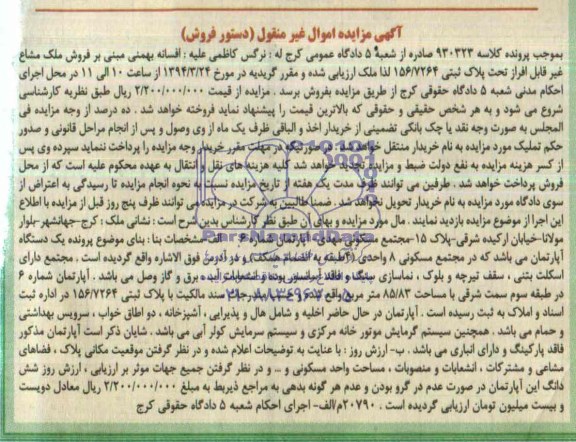 آگهی مزایده اموال غیر منقول (دستور فروش)
بموجب پرونده کلاسه ۹۳۰۳۲۳ صادره از شعبه ۵ دادگاه عمومی کرج له : نرگس کاظمی علیه : افسانه بهمنی مبنی بر فروش ملک مشاع
غیر قابل افراز تحت پلاک ثبتی ۱۵۶/۷۲۶۴ لذا ملک ارزیابی شده و مقرر گردیده در مورخ ۱۳۹۴/۳/۲۴ از ساعت ۱۰ الی ۱۱ در محل اجرای
احکام مدنی شعبه ۵ دادگاه حقوقی کرج از طریق مزایده بفروش برسد . مزایده از قیمت ۲/۲۰۰/۰۰۰/۰۰۰ ریال طبق نظریه کارشناسی
شروع می شود و به هر شخص حقیقی و حقوقی که بالاترین قیمت را پیشنهاد نماید فروخته خواهد شد . ده درصد از وجه مزایده فی
المجلس به صورت وجه نقد یا چک بانکی تضمینی از خریدار اخذ و الباقی ظرف یک ماه از وی وصول و پس از انجام مراحل قانونی و صدور
حکم تملیک مورد مزایده به نام خریدار منتقل خواهد شد در صورتیکه در مهلت مقرر خریدار وجه مزایده را پرداخت ننماید سپرده وی پس
از کسر هزینه مزایده به نفع دولت ضبط و مزایده تجدید خواهد شد کلیه هزینه های نقل و انتقال به عهده محکوم علیه است که از محل
فروش پرداخت خواهد شد . طرفین می توانند ظرف مدت یک هفته از تاریخ مزایده نسبت به نحوه انجام مزایده تا رسیدگی به اعتراض از
سوی دادگاه مورد مزایده به نام خریدار تحویل نخواهد شد . ضمنا طالبین به شرکت در مزایده می توانند ظرف پنج روز قبل از مزایده با اطلاع
این اجرا از موضوع مزایده بازدید نمایند . مال مورد مزایده و بهای آن طبق نظر کارشناس بدین شرح است : نشانی ملک : کرج-جهانشهر-بلوار
مولانا-خیابان ارکیده شرقی-پلاک ۱۵-مجتمع مسکونی مهدی ۲ آپارتمان شماره ۶ الف- مشخصات بنا : بنای موضوع پرونده یک دستگاه
آپارتمان می باشد که در مجتمع مسکونی ۸ واحدی (۴ طبقه به انضمام همکف) و در آدرس فوق الاشاره واقع گردیده است . مجتمع دارای
اسکلت بتنی ، سقف تیرچه و بلوک ، نماسازی سنگ و فاقد آسانسور بوده و انشعابات آب، برق و گاز وصل می باشد . آپارتمان شماره ۶
در طبقه سوم سمت شرقی با مساحت ۸۵/۸۳ متر مربع واقع سند مالکیت با پلاک ثبتی ۱۵۶/۷۲۶۴ در اداره ثبت
اسناد و املاک به ثبت رسیده است . آپارتمان در حال حاضر اخلیه و شامل هال و پذیرایی ، آشپزخانه ، دو اطاق خواب ، سرویس بهداشتی
و حمام می باشد . همچنین سیستم گرمایش موتور خانه مرکزی و سیستم سرمایش کولر آبی می باشد . شایان ذکر است آپارتمان مذکور
فاقد پارکینگ و دارای انباری می باشد . ب- ارزش روز : با عنایت به توضیحات اعلام شده و در نظر گرفتن موقعیت مکانی پلاک ، فضاهای
مشاعی و مشترکات ، انشعابات و منصوبات ، مساحت واحد مسکونی و ... و در نظر گرفتن جمیع جهات موثر بر ارزیابی ، ارزش روز شش
دانگ این آپارتمان در صورت عدم در گرو بودن و عدم هر گونه بدهی به مراجع ذیربط به مبلغ ۲/۲۰۰/۰۰۰/۰۰۰ ریال معادل دویست
و بیست میلیون تومان ارزیابی گردیده است . ۲۰۷۹۰/م/الف- اجرای احکام شعبه ۵ دادگاه حقوقی کرج
ParsNamadData
۰۲۱-۸۸۳۴۹۶۷۰-۵